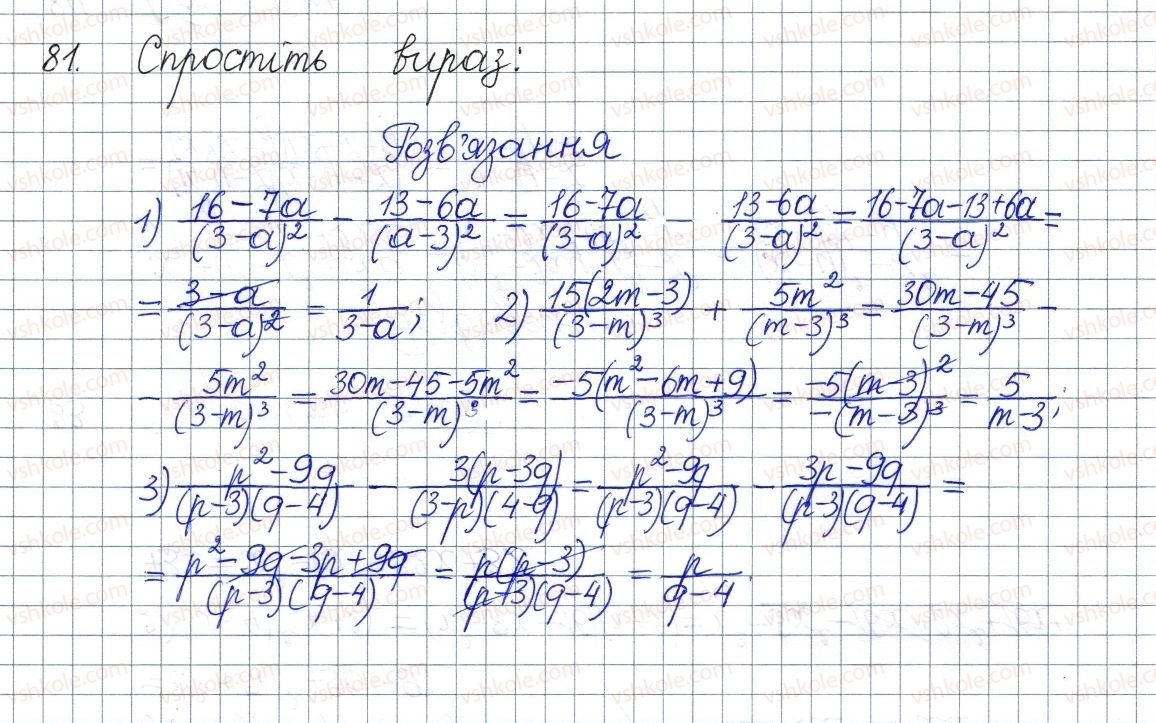 81. Спростіть вираз:
Розв'язання
1) \frac{16-7a}{(3-a)^2} - \frac{13-6a}{(a-3)^2} = \frac{16-7a}{(3-a)^2} - \frac{13-6a}{(3-a)^2} = \frac{16-7a-13+6a}{(3-a)^2} =
= \frac{3-a}{(3-a)^2} = \frac{1}{3-a}; 2) \frac{15(2m-3)}{(3-m)^3} + \frac{5m^2}{(m-3)^3} = \frac{30m-45}{(3-m)^3} -
- \frac{5m^2}{(3-m)^3} = \frac{30m-45-5m^2}{(3-m)^3} = \frac{-5(m^2-6m+9)}{(3-m)^3} = \frac{-5(m-3)^2}{-(m-3)^3} = \frac{5}{m-3};
3) \frac{p^2-9q}{(p-3)(q-4)} - \frac{3(p-3q)}{(3-p)(4-q)} = \frac{p^2-9q}{(p-3)(q-4)} - \frac{3p-9q}{(p-3)(q-4)} =
= \frac{p^2-9q-3p+9q}{(p-3)(q-4)} = \frac{p(p-3)}{(p-3)(q-4)} = \frac{p}{q-4}.
vshkole.com